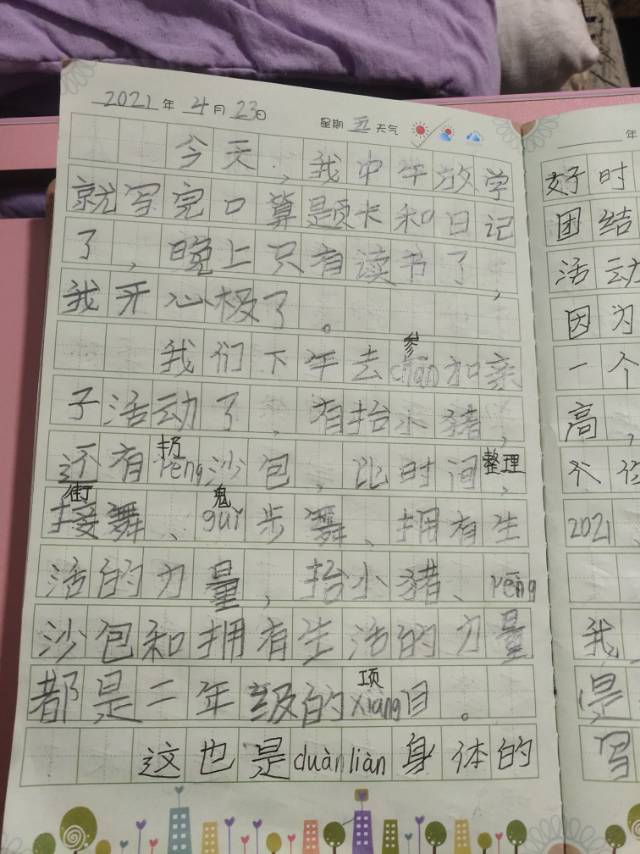 2021年4月23日 星期五天气
今天,我中午放学
就写完口算题卡和日记
了,晚上只有读书了,
我开心极了。
我们下午去参cān加亲
子活动了,有抬小猪,
还有扔rēng沙包,比时间整理,
街接舞、鬼guǐ步舞、拥有生
活的力量,抬小猪、rēng
沙包和拥有生活的力量
都是二年级的项xiàng目。
这也是duànliàn身体的
年
好时
团结
活动
因为
一个
高,
不
2021
我
是
写